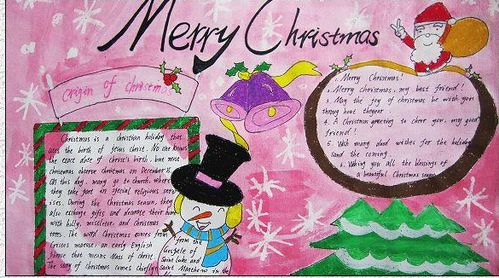 Merry Christmas
Origin of christmas
Christmas is a christian holiday that
the birth of Jesus christ. No one knows
the exact date of christ's birth, but most
christians observe christmas on December
On this day, many go to church, where
they take part in special religious
During the Christmas season, they
also exchange gifts and decorate their
with holly, mistletoe, and christmas
trees. The word Christmas comes from
an early English
phrase that means Mass of christ
The song of Christmas comes chiefly
from the
Gospels of
Saint Luke and
Saint Matthew in the
1. Merry Christmas!
2. Merry christmas, my best friend!
3. May the joy of christmas be with you
through
4. A Christmas greeting to cheer you, my good
friend!
5. With many good wishes for the holiday
and the coming
6. Wishing you all the blessings of
a beautiful Christmas season